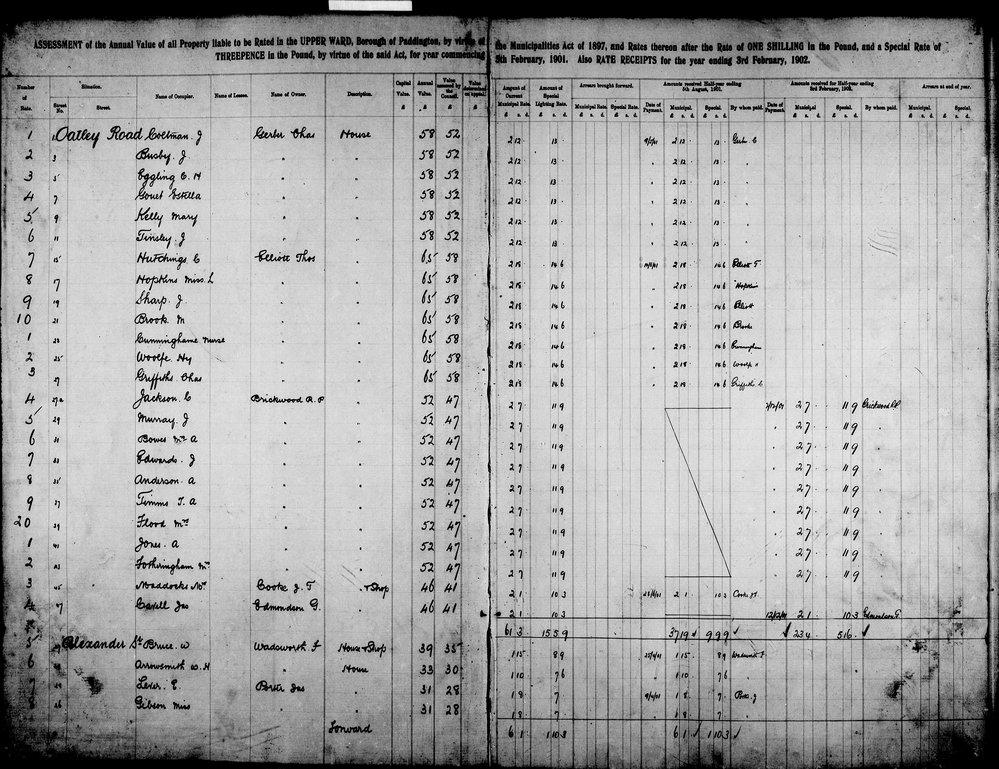 ASSESSMENT of the Annual Value of all Property liable to be Rated in the UPPER WARD, Borough of Paddington, by virtue of the Municipalities Act of 1897, and Rates thereon after the Rate of ONE SHILLING in the Pound, and a Special Rate of
THREEPENCE in the Pound, by virtue of the said Act, for year commencing 5th February, 1901. Also RATE RECEIPTS for the year ending 3rd February, 1902.
Number of Rate. Situation. Street No. Street. Name of Occupier. Name of Lessee. Name of Owner. Description. Capital Value. £ Annual Value. £ Value assessed by the Council. £ Amount of Current Municipal Rate. £ s. d. Amount of Special Lighting Rate. £ s. d. Arrears brought forward. Municipal Rate. Special Rate. Amounts received Half-year ending 5th August, 1901. Date of Payment. Municipal. Special. By whom paid. Amounts received for Half-year ending 3rd February, 1902. Date of Payment. Municipal. Special. By whom paid. Arrears at end of year. Municipal. Special.
1 1 Oatley Road Coltman. J Gerler Chas House 58 52 2 12 13 2 12 13
2 3 Busby. J " " 58 52 2 12 13 " 2 12 13 "
3 5 Eggling C. H " " 58 52 2 12 13 " 2 12 13 "
4 7 Gouet Estella " " 58 52 2 12 13 " 2 12 13 "
5 9 Kelly Mary " " 58 52 2 12 13 " 2 12 13 "
6 11 Tinsley. J " " 58 52 2 12 13 " 2 12 13 "
7 15 Hutchings C Elliott Thos " 65 58 2 18 14 6 2 18 14 6 Elliott T
8 17 Hopkins Miss. L " " 65 58 2 18 14 6 " 2 18 14 6 Hopkins
9 19 Sharp. J. " " 65 58 2 18 14 6 " 2 18 14 6 Elliott
10 21 Brook. M " " 65 58 2 18 14 6 " 2 18 14 6 Brooks
1 23 Cunninghame Nurse " " 65 58 2 18 14 6 " 2 18 14 6 Cunningham
2 25 Woolfe. Hy " " 65 58 2 18 14 6 " 2 18 14 6 Woolfe H
3 27 Griffiths. Chas " " 65 58 2 18 14 6 " 2 18 14 6 Griffiths C
4 27a Jackson. C Brickwood R. P " 52 47 2 7 11 9 2 7 11 9 Brickwood
5 29 Murray. J " " 52 47 2 7 11 9 " 2 7 11 9 "
6 31 Bowes Mrs A " " 52 47 2 7 11 9 " 2 7 11 9 "
7 33 Edwards. J " " 52 47 2 7 11 9 " 2 7 11 9 "
8 35 Anderson. A " " 52 47 2 7 11 9 " 2 7 11 9 "
9 37 Timms T. A " " 52 47 2 7 11 9 " 2 7 11 9 "
20 39 Flood Mrs " " 52 47 2 7 11 9 " 2 7 11 9 "
1 41 Jones. A " " 52 47 2 7 11 9 " 2 7 11 9 "
2 43 Fotheringham Mrs " " 52 47 2 7 11 9 " 2 7 11 9 "
3 45 Maddocks Mrs Cooke J. T " & Shop 46 41 2 1 10 3 2 1 10 3
4 47 Cavell Jas Edmondson G. " 46 41 2 1 10 3 12/12/01 2 1 10 3 Edmondson G
61 3 15 5 9 37 19 9 9 9 23 4 5 16
5 Alexander St Bruce. W Wadsworth F House & Shop 39 35 1 15 8 9 1 15 8 9 Wadsworth F
6 Arrowsmith W. H " House 33 30 1 10 7 6 1 10 7 6
7 Lever. E. Porter Jas " 31 28 1 8 7 1 8 7
8 Gibson Miss " " 31 28 1 8 7 1 8 7
Forward 6 1 1 10 3 6 1 1 10 3